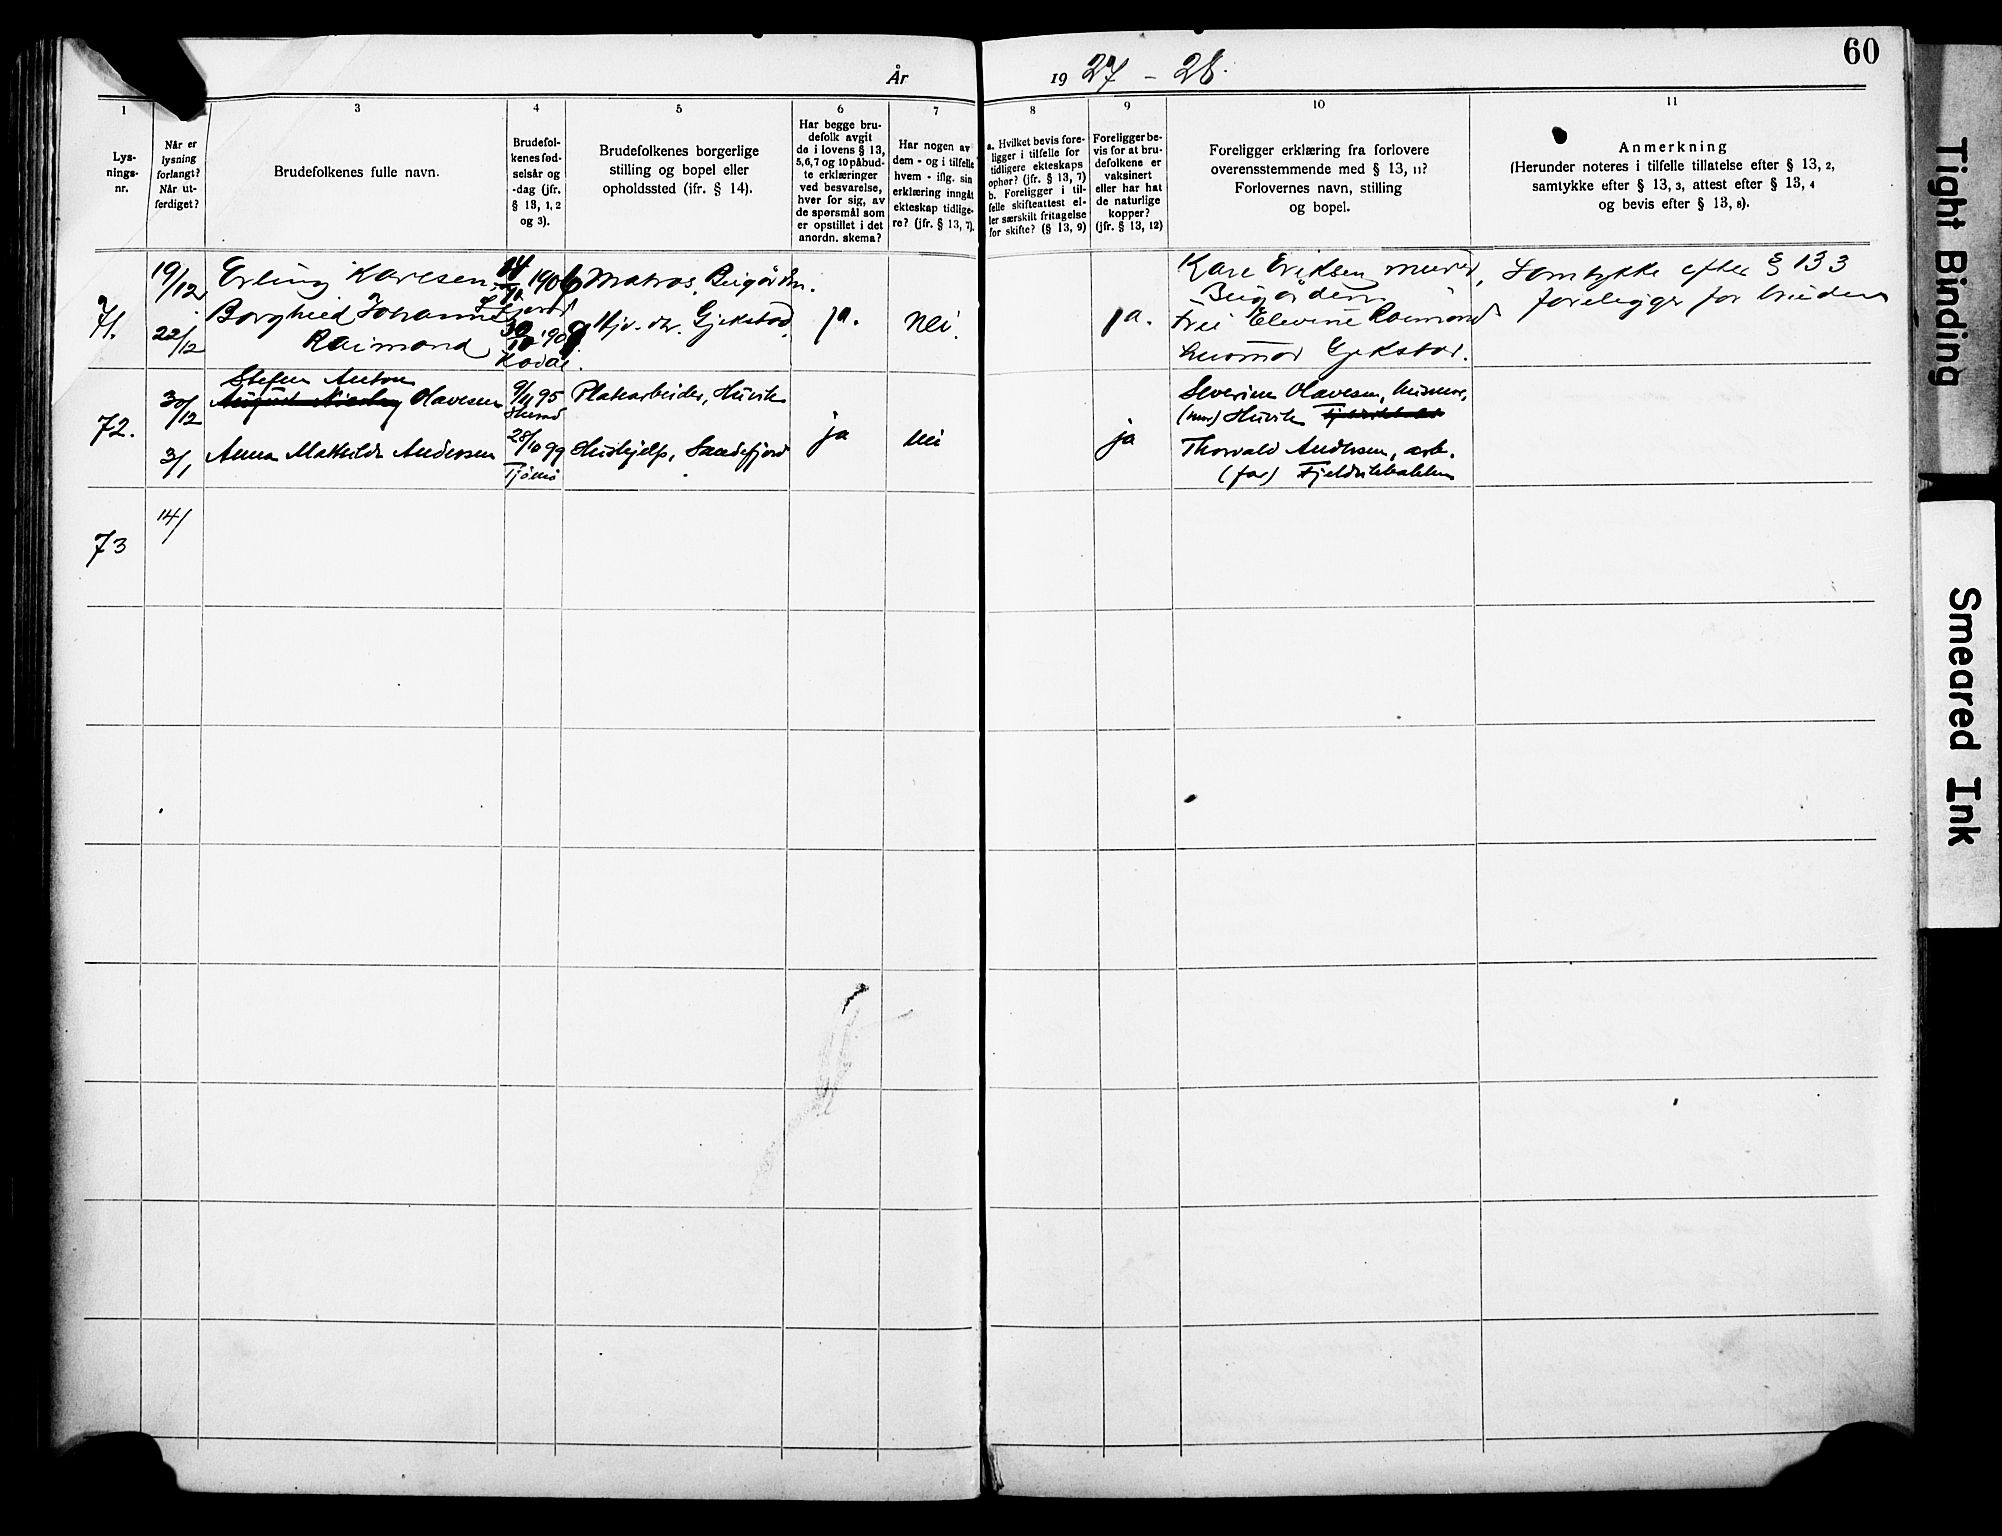 År 1927 - 28.
60
1
3
4
5
6
7
8
9
10
11
Lys-
nings-
nr.
Når er
lysning
forlangt?
Når ut-
ferdiget?
Brudefolkenes fulle navn.
Brudefol-
kenes fød-
selsår og
-dag (jfr.
§ 13, 1, 2
og 3).
Brudefolkenes borgerlige
stilling og bopel eller
opholdssted (jfr. § 14).
Har begge bru-
defolk avgit
de i lovens § 13,
5,6,7 og 10 påbud-
te erklæringer
ved besvarelse,
hver for sig, av
de spørsmål som
er opstillet i det
anordn. skema?
Har nogen av
dem - og i tilfelle
hvem - iflg. sin
erklæring inngåt
ekteskap tidlige-
re? (jfr. § 13, 7).
a. Hvilket bevis fore-
ligger i tilfelle for
tidligere ekteskaps
ophør? (jfr. § 13, 7)
b. Foreligger i til-
felle skifteattest el-
ler særskilt fritagelse
for skifte? (§ 13, 9)
Foreligger be-
vis for at bru-
defolkene er
vaksinert
eller har hat
de naturlige
kopper?
(jfr. § 13, 12)
Foreligger erklæring fra forlovere
overensstemmende med § 13, 11?
Forlovernes navn, stilling
og bopel.
Anmerkning
(Herunder noteres i tilfelle tillatelse efter § 13, 2,
samtykke efter § 13, 3, attest efter § 13, 4
og bevis efter § 13, 8).
71.
19/12
22/12
Erling Karlsen
Borghild Johanne
Raimond
1906
Matros,
Hj.v. dr. Gjekstad
ja.
Nei.
ja.
Kare Eriksen murer,
Elevine Raimond
Gjekstad.
Samtykke efter § 13 3
foreligger for bruden
72.
30/12
3/1
Stefen Anton
Olavesen
Anna Mathilde Andersen
9/11 95
28/10 99
Tjømø
Platearbeider, Huvik
Hushjelp, Sandefjord
ja
nei
ja
Severine Olavesen, husmor,
(mor) Huvik
Thorvald Andersen, arb.
(far) Fjeldvikbakken
73
14/
Tight Binding
Smeared Ink